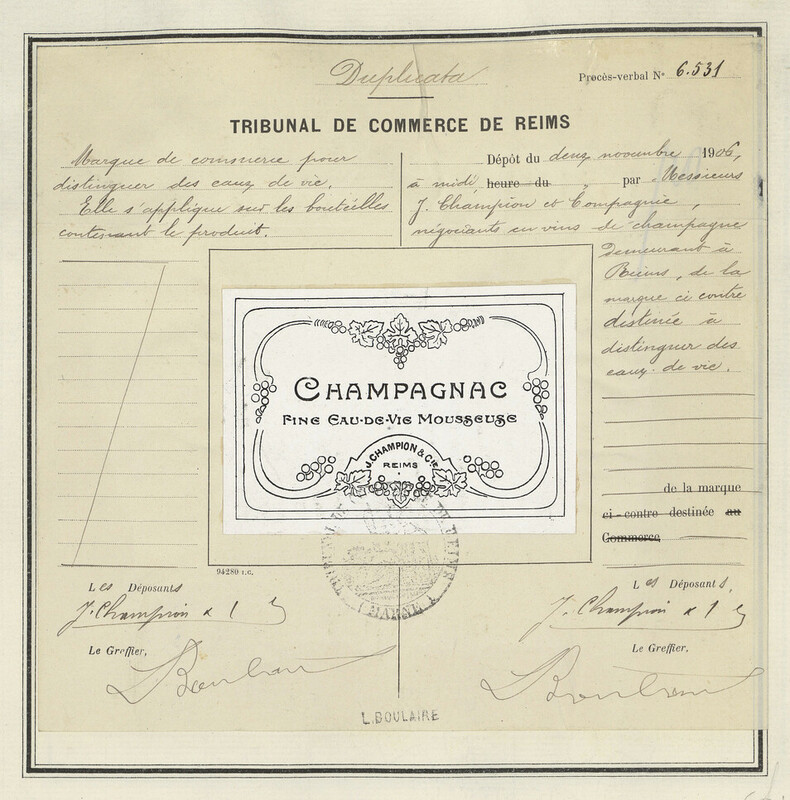 Duplicata
Procès-verbal N° 6.531
TRIBUNAL DE COMMERCE DE REIMS
Marque de commerce pour
distinguer des eaux de vie.
Elle s'applique sur les bouteilles
contenant le produit.
Dépôt du deux novembre 1906,
à midi, heure du „ par Messieurs
J. Champion et Compagnie,
négociants en vins de champagne
demeurant à
Reims, de la
marque ci contre
destinée à
distinguer des
eaux-de vie.
CHAMPAGNAC
FINE EAU-DE-VIE MOUSSEUSE
J. CHAMPION & CIE
REIMS
de la marque
ci-contre destinée au
Commerce,
94280 I.C.
TRIBUNAL DE REIMS
(MARNE)
Les Déposants
J. Champion & 
Le Greffier,
Boulaire
Les Déposants,
J. Champion & 
Le Greffier,
Boulaire
L. BOULAIRE